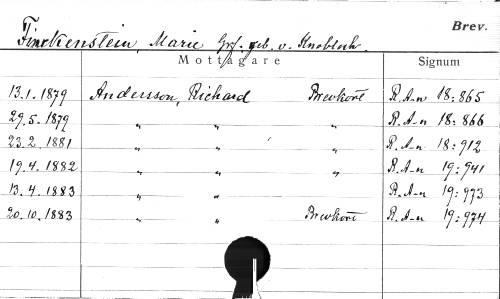 Brev.
Finckenstein, Marie Grf. geb. v. Knobloch.
Mottagare Signum
13.1.1879 Andersson, Richard Brevkort R.A-n 18:865
29.5.1879 " " " R.A-n 18:866
23.2.1881 " " " R.A-n 18:912
19.4.1882 " " " R.A-n 19:941
13.4.1883 " " R.A-n 19:973
20.10.1883 " " Brevkort R.A-n 19:974